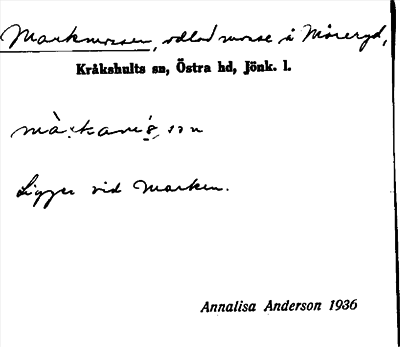 Markmossen, odlad mosse i Möreryd,
Kråkshults sn, Östra hd, Jönk. l.
Ligger vid Marken.
Annalisa Anderson 1936